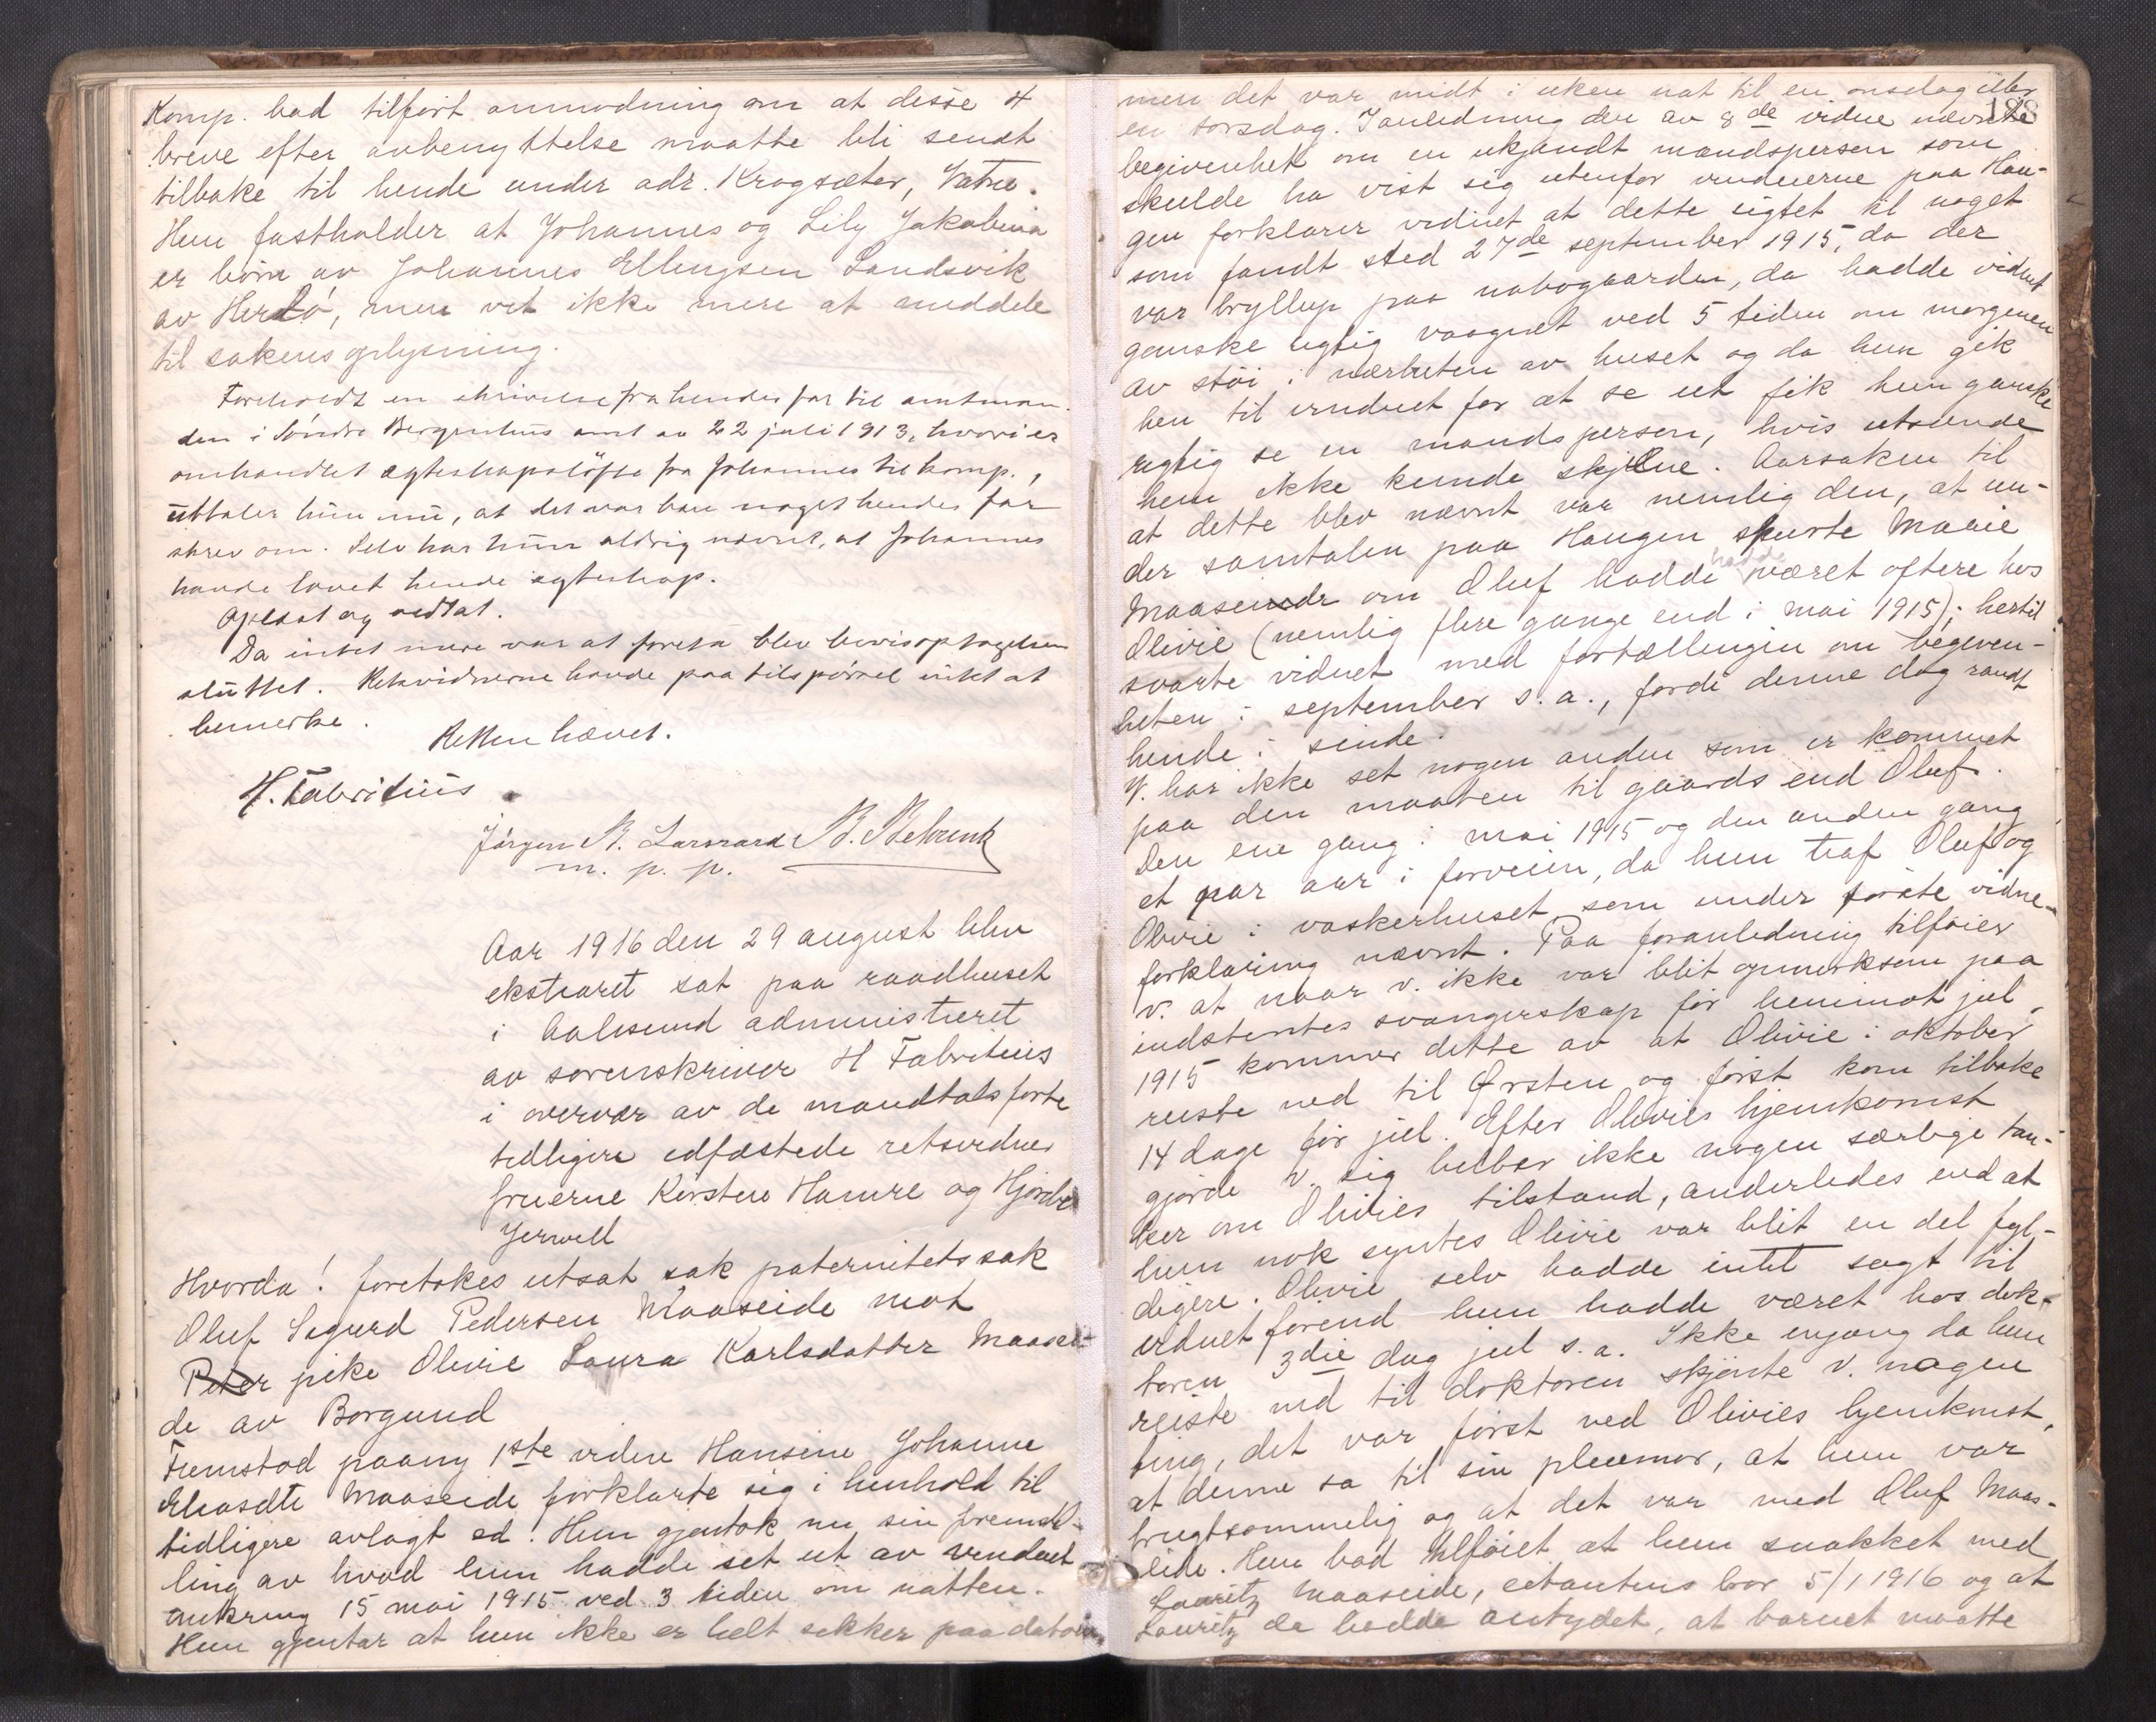 Komp. bad tilført anmodning om at disse 4
breve efter avbenyttelse maatte bli sendt
tilbake til hende under adr. Krogsæter, Vatne.
Hun fastholder at Johannes og Lily Jakobina
er børn av Johannes Ellingsen Landsvik
av Herlö, men vet ikke mere at meddele
til sakens oplysning.
Foreholdt en skrivelse fra hendes far til amtman-
den i Søndre Bergenhus amt av 22 juli 1913, hvori er
omhandlet egteskapsløfte fra Johannes til komp.,
uttaler hun nu, at det var bare noget hendes far
skrev om. Selv har hun aldrig nævnt, at Johannes
havde lovet hende egteskap.
Oplæst og vedtat.
Da intet mere var at foreta blev bevisoptagelsen
sluttet. Retsvidnerne havde paa tilspørsel intet at
bemerke.
Retten hævet.
H. Fabritius
Jørgen N. Larsgard B. Behrentz
m. p. p.
Aar 1916 den 29 august blev
ekstraret sat paa raadhuset
i Aalesund administreret
av sorenskriver H Fabritius
i overvær av de mandtalsførte
tidligere edfæstede retsvidner
fruerne Kirsten Hamre og Hjørdis
Jerwell
Hvorda! foretokes utsat sak paternitetssak
Oluf Sigurd Pedersen Maaseide mot
Peter pike Olivie Laura Karlsdatter Maasei-
de av Borgund
Fremstod paany 1ste vidne Hansine Johanne
Elvasdte Maaseide forklarte sig i henhold til
tidligere avlagt ed. Hun gjentok nu sin fremstil-
ling av hvad hun hadde set ut av vinduet
omkring 15 mai 1915 ved 3 tiden om natten.
Hun gjentar at hun ikke er helt sikker paa datoen,
188
men det var midt i uken nat til en onsdag eller
en torsdag. I anledning den av 8de vidne nævnte
begivenhet om en ukjendt mandsperson som
skulde ha vist sig utenfor vinduerne paa Hau-
gen forklarer vidnet at dette sigtet til noget
som fandt sted 27de september 1915, da der
var bryllup paa nabogaarden, da hadde vidnet
ganske rigtig vaagnet ved 5 tiden om morgenen
av støi i nærheten av huset og da hun gik
hen til vinduet for at se ut fik hun ganske
rigtig se en mandsperson, hvis utseende
hun ikke kunde skjelne. Aarsaken til
at dette blev nævnt var nemlig den, at un-
der samtalen paa Haugen spurte Maaie
Maaseide om Oluf hadde hadde været oftere hos
Olivie (nemlig flere gange end i mai 1915); hertil
svarte vidnet med fortællingen om begiven-
heten i september s. a., fordi denne dag randt
hende i sinde.
V. har ikke set nogen anden som er kommet
paa den maaten til gaards end Oluf.
Den ene gang i mai 1915 og den anden gang
et par aar i forveien, da hun traf Oluf og
Olivie i vaskerhuset, som under første vidne-
forklaring nævnt. Paa foranledning tilføier
v. at naar v. ikke var blit opmerksom paa
indstevntes svangerskap før henimot jul
1915 kommer dette av at Olivie i oktober
reiste ned til Ørsten og først kom tilbake
14 dage før jul. Efter Olivies hjemkomst
gjorde v. sig heller ikke nogen særlige tan-
ker om Olivies tilstand, anderledes end at
hun nok syntes Olivie var blit en del fyl-
digere. Olivie selv hadde intet sagt til
vidnet førend hun hadde været hos dok-
toren 3die dag jul s. a. Ikke engang da hun
reiste ind til doktoren skjønte v. nogen
ting, det var først ved Olivies hjemkomst,
at denne sa til sin pleiemor, at hun var
frugtsommelig og at det var med Oluf Maas-
eide. Hun bad tilføiet at hun snakket med
Lauritz Maaseide, citantens bror 5/1 1916 og at
Lauritz da hadde antydet, at barnet maatte